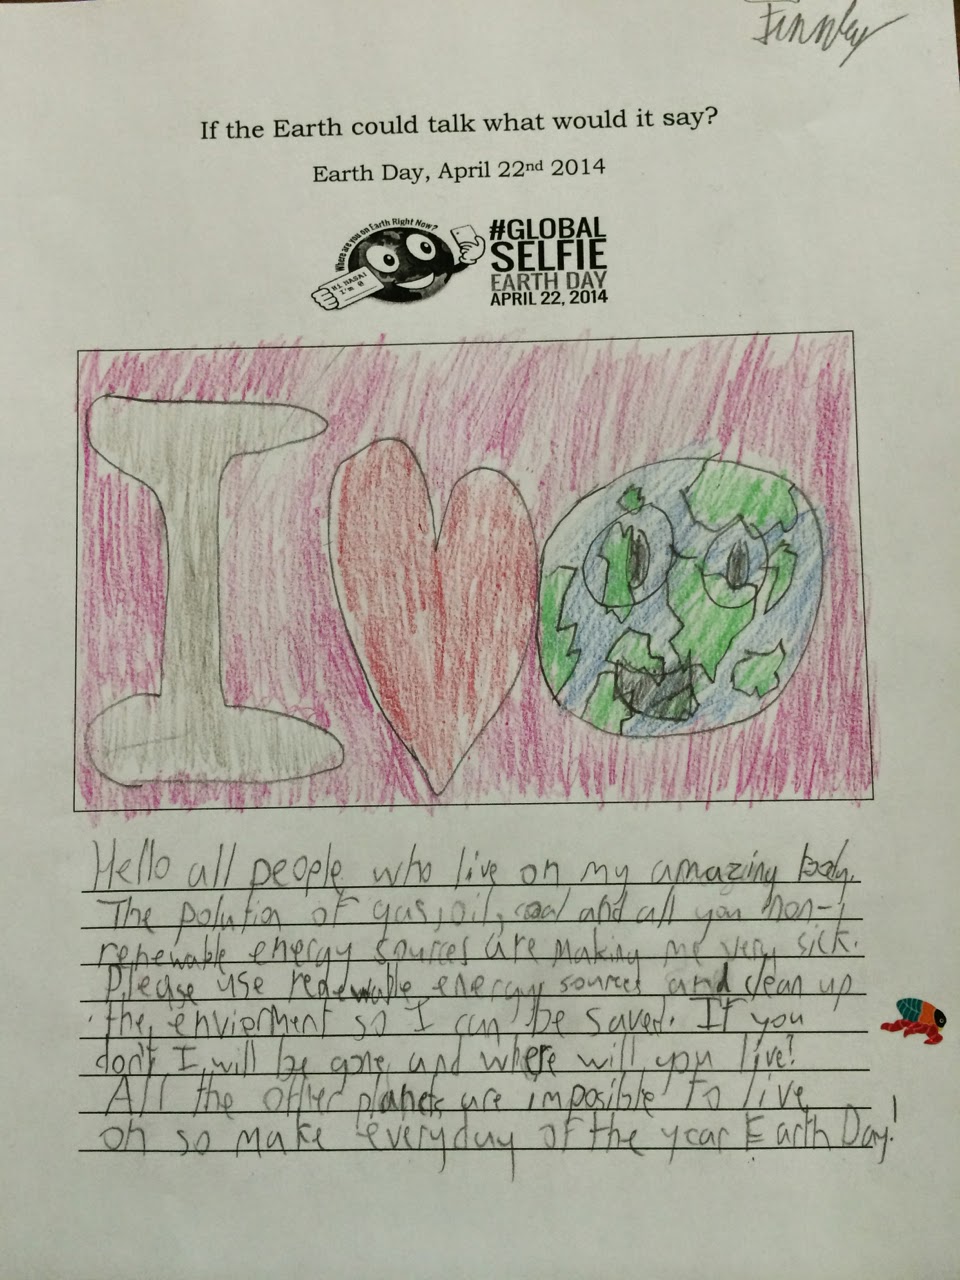 Finnley
If the Earth could talk what would it say?
Earth Day, April 22nd 2014
Where are you on Earth Right Now?
HI NASA!
I'm @
#GLOBAL
SELFIE
EARTH DAY
APRIL 22, 2014
I
Hello all people who live on my amazing body.
The polution of gas, oil, coal and all you non-
renewable energy sources are making me very sick.
Please use renewable energy sources and clean up
the enviorment so I can be saved. If you
don't I will be gone and where will you live?
All the other planets are imposible to live
on so make everyday of the year Earth Day!